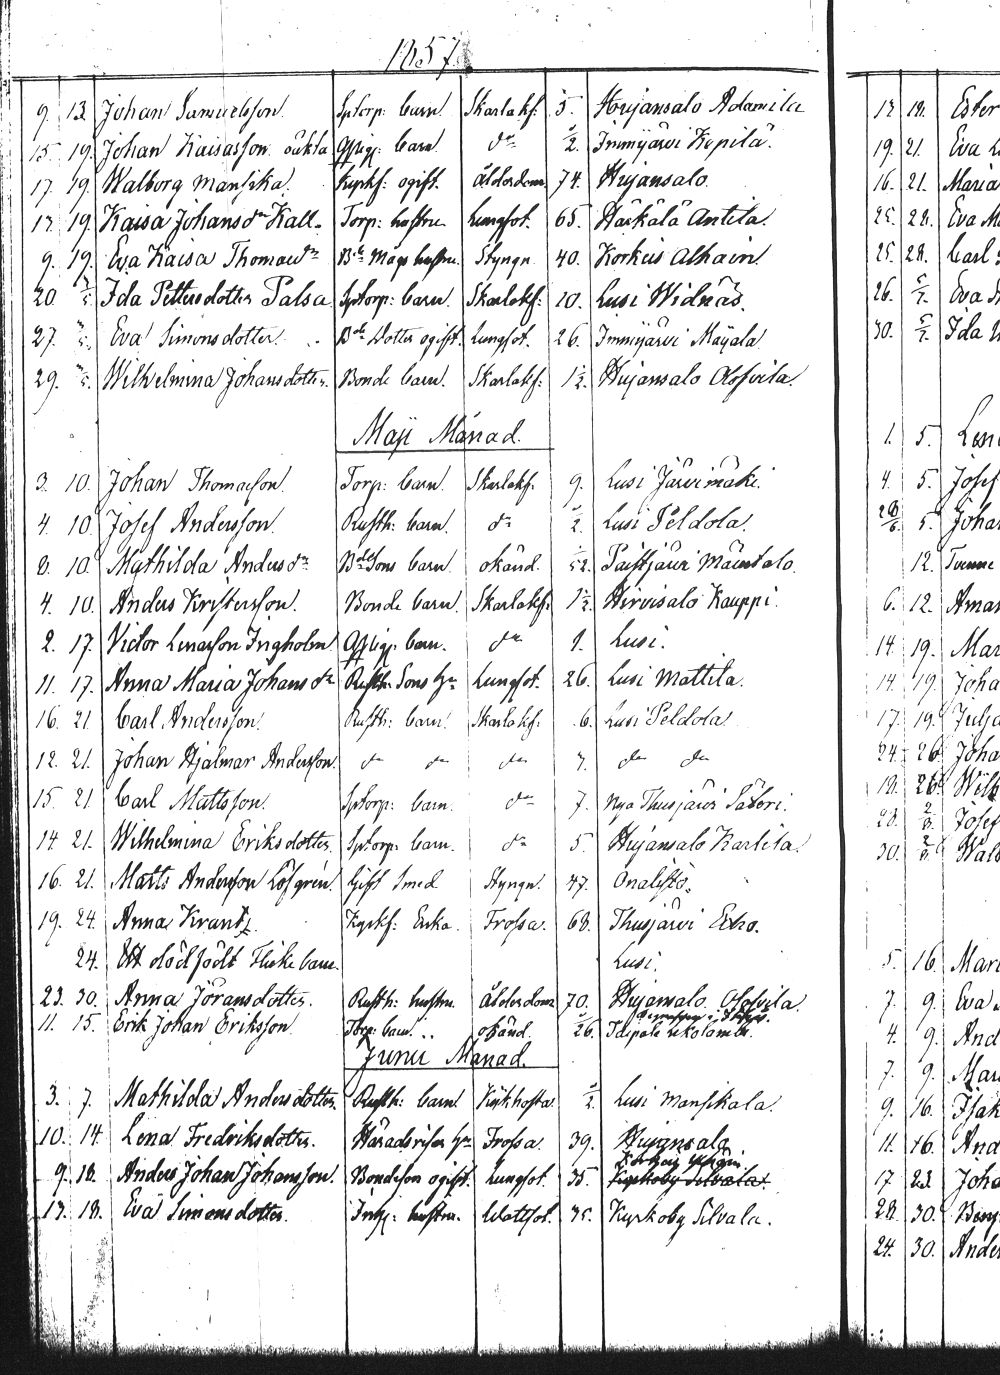 1857.
9. 13. Johan Samuelsson. Sptorp: barn. Skarlakf: 5. Hujansalo Adamila
15. 19. Johan Kaisasson oäkta barn. do 1/2. Immijärvi Kepilä.
17. 19. Walborg Mansika. Kyrkf: ogift. ålderdom 74. Hujansalo.
17. 19. Kaisa Johansdr Kall. Torp: hustru Lungsot. 65. Häkälä Anttila.
9. 19. Eva Kaisa Thomasdr Bde Mågs hustru. Styngn. 40. Korkeis Alhain.
20. 3/5. Ida Pettersdotter Palsa Sptorp: barn. Skarlakf: 10. Lusi Widnäs.
27. 3/5. Eva Simonsdotter. Bde Dotter ogift. Lungsot. 26. Immijärvi Mäyälä.
29. 3/5. Wilhelmina Johansdotter. Bonde barn. Skarlakf: 1 1/2. Hujansalo Olofvila.
Maji Månad.
3. 10. Johan Thomasson. Torp: barn. Skarlakf: 9. Lusi Järvimäki.
4. 10. Josef Andersson. Rusth: barn. do 1/2. Lusi Peldola.
8. 10. Mathilda Andersdr Bde Sons barn. okänd. 1/52. Paistjärvi Mäentalo.
4. 10. Anders Kristersson. Bonde barn. Skarlakf: 1 1/2. Hirvisalo Kauppi.
2. 17. Victor Lenasson Ingholm barn. do 1. Lusi.
11. 17. Anna Maria Johansdr Rusth: Sons hu Lungsot. 26. Lusi Mattila.
16. 21. Carl Andersson. Rusth: barn. Skarlakf: 6. Lusi Peldola
12. 21. Johan Hjalmar Andersson. do do do 7. do do
15. 21. Carl Mattsson. Sptorp: barn. do 7. Nya Thusjärvi Säteri.
14. 21. Wilhelmina Eriksdotter Sptorp: barn. do 5. Hujansalo Karlila.
16. 21. Matts Andersson Löfgren. Gift Smed Styngn. 47. Onalisto.
19. 24. Anna Krantz. Kyrkf: Enka. Frossa. 68. Thusjärvi Erho.
24. Ett dödfödt Flicke barn. Lusi.
23. 30. Anna Jöransdotter. Rusth: hustru ålderdom 70. Hujansalo Olofvila
11. 15. Erik Johan Eriksson. Torp: barn. okänd. 1/26.
Junii Månad.
3. 7. Mathilda Andersdotter. Rusth: barn. Kikhosta 1/2. Lusi Mansikala.
10. 14. Lena Fredriksdotter. Häradsrisen hu Frossa. 39. Hujansala
9. 18. Anders Johan Johansson. Bondeson ogift. Lungsot. 35. Kyrkoby Silvala.
17. 18. Eva Simonsdotter. hustru. Wattsot. 35. Kyrkoby Silvala.
17. 18. Ester
19. 21. Eva
16. 21. Maria
25. 28. Eva
25. 28. Carl
26. 5/7. Eva
30. 5/7. Ida
1. 5. Lena
4. 5. Josef
28/6. 5. Johan
12. Tvenne
6. 12. Aman
14. 19. Mar
14. 19. Joha
17. 19. Julja
24. 26. Joha
18. 26. Wilh
28. 2/8. Josef
30. 2/8. Walb
5. 16. Mari
7. 9. Eva
4. 9. And
7. 9. Mari
9. 16. Isak
11. 16. And
17. 23. Joha
28. 30. Benj
24. 30. Ander